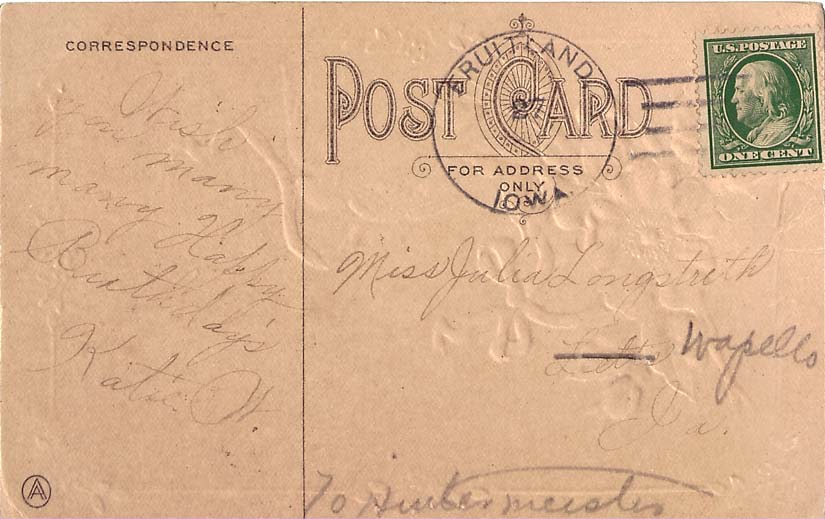 CORRESPONDENCE
Wish
you many
many Happy
Birthday's
Katie W.
POST CARD
FOR ADDRESS
ONLY
FRUITLAND
IOWA
U.S. POSTAGE
ONE CENT
Miss Julia Longstreth
Letts Wapello
Ia.
To
A